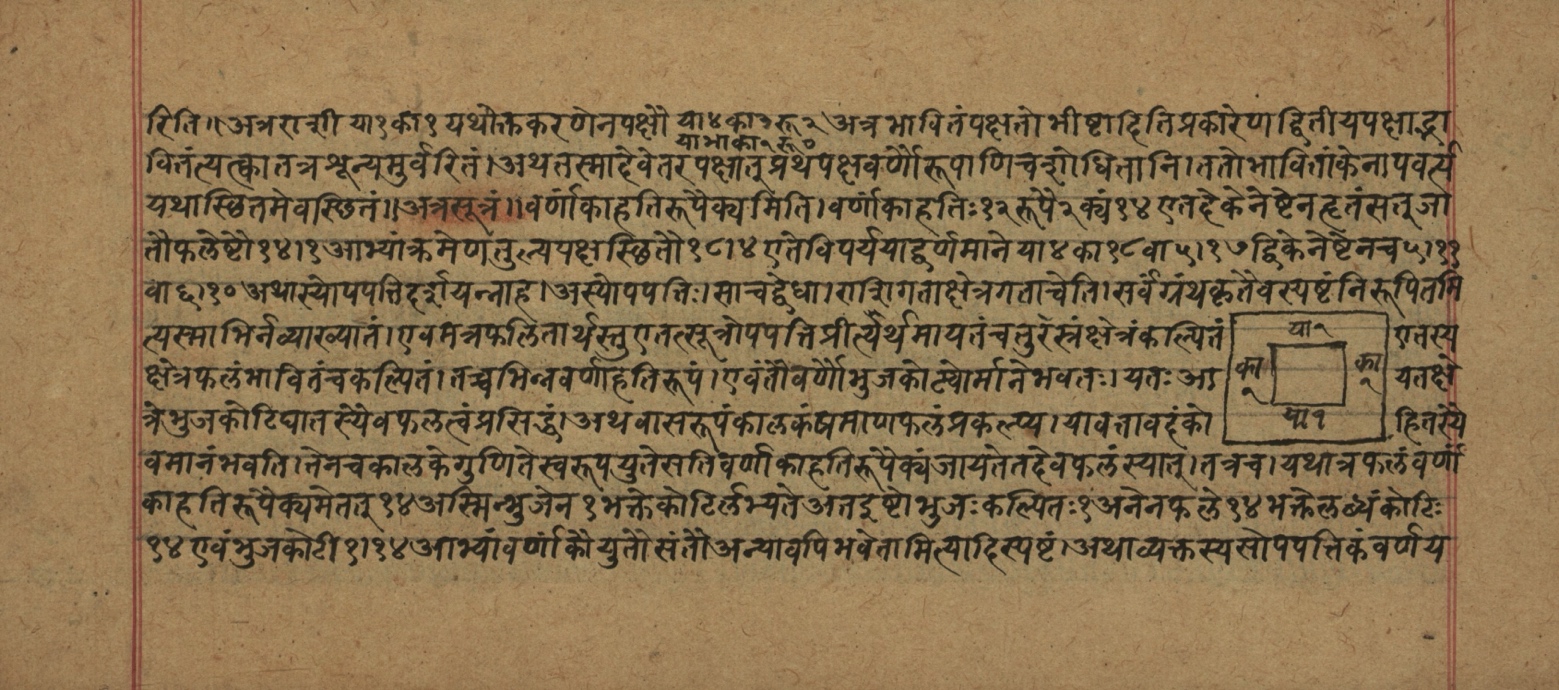 रिति॥ अत्रराशी या१का१ यथोक्तकरणेनपक्षौ या४का३रू२ अत्रभावितंपक्षतोभीष्टादितिप्रकारेणद्वितीयपक्षाद्भा
याभाका१रू०
वितंत्यत्क्वातत्रशून्यमुर्वरितं।अथतस्मादेवेतरपक्षातुप्रथपक्षवर्णौरूपाणिचशोधितानि।ततोभावितांकेनापवर्त्य
यथास्थितमेवस्थितं॥अत्रसूत्रं॥वर्णांकाहतिरूपैक्यमिति।वर्णांकाहतिः१२रूपै२क्यं१४एतदेकेनेष्टेनहृतंसतुजा
तौफलेष्टौ१४।१आभ्यांक्रमेणतुल्यपक्षस्थितौ१८।४एतेविपर्ययाद्वर्णमाने या४का१८वा५।१७द्विकेनेष्टेनच५।११
वा६।१०अथास्योपपत्तिदर्शयन्नाह।अस्योपपत्तिः।साचद्वेधा।राशिगताक्षेत्रगताचेति।सर्वंग्रंथकृतैवस्पष्टंनिरूपितमि
त्यस्माभिर्नव्याख्यातं।एवमत्रफलितार्थस्तुएतत्सूत्रोपपत्तिप्रीर्त्यर्थमायतंचतुरस्रंक्षेत्रंकल्पितं एतस्य
या१
क्षेत्रफलंभावितंचकल्पितं।तच्चभिन्नवर्णाहतिरूपं।एवंतौवर्णौभुजकोट्योर्मानेभवतः।यतःआ यतक्षे
का१ का१
त्रेभुजकोटिघातस्यैवफलत्वंप्रसिद्धं।अथवासरूपंकालकंप्रमाणफलंप्रकल्प्य।यावत्तावदंको हितस्यै
या१
वमानंभवति।तेनचकालकेगुणितेस्वरूपयुतेसतिवर्णांकाहतिरूपैक्यंजायतेतदेवफलंस्यातु।तत्रच।यथात्रफलंवर्णां
काहतिरूपैक्यमेततु१४अस्मिन्भुजेन१भक्तेकोटिर्लभ्यतेअतइष्टोभुजःकल्पितः१अनेनफले१४भक्तेलब्धंकोटिः
१४एवंभुजकोटी१।१४आभ्यांवर्णांकौयुतौसंतौअन्यावपिभवेतामित्यादिस्पष्टं।अथाव्यक्तस्यसोपपत्तिकंवर्णय